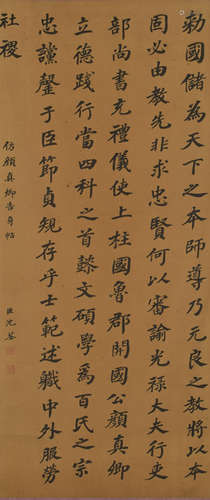 勑國儲為天下之本師導乃元良之教將以本
固必由教先非求忠賢何以審諭光祿大夫行吏
部尚書充禮儀使上柱國魯郡開國公顏真卿
立德踐行當四科之首懿文碩學為百氏之宗
忠讜罄于臣節貞規存乎士範述職中外服勞
社稷
仿顏真卿告身帖
臣沈荃